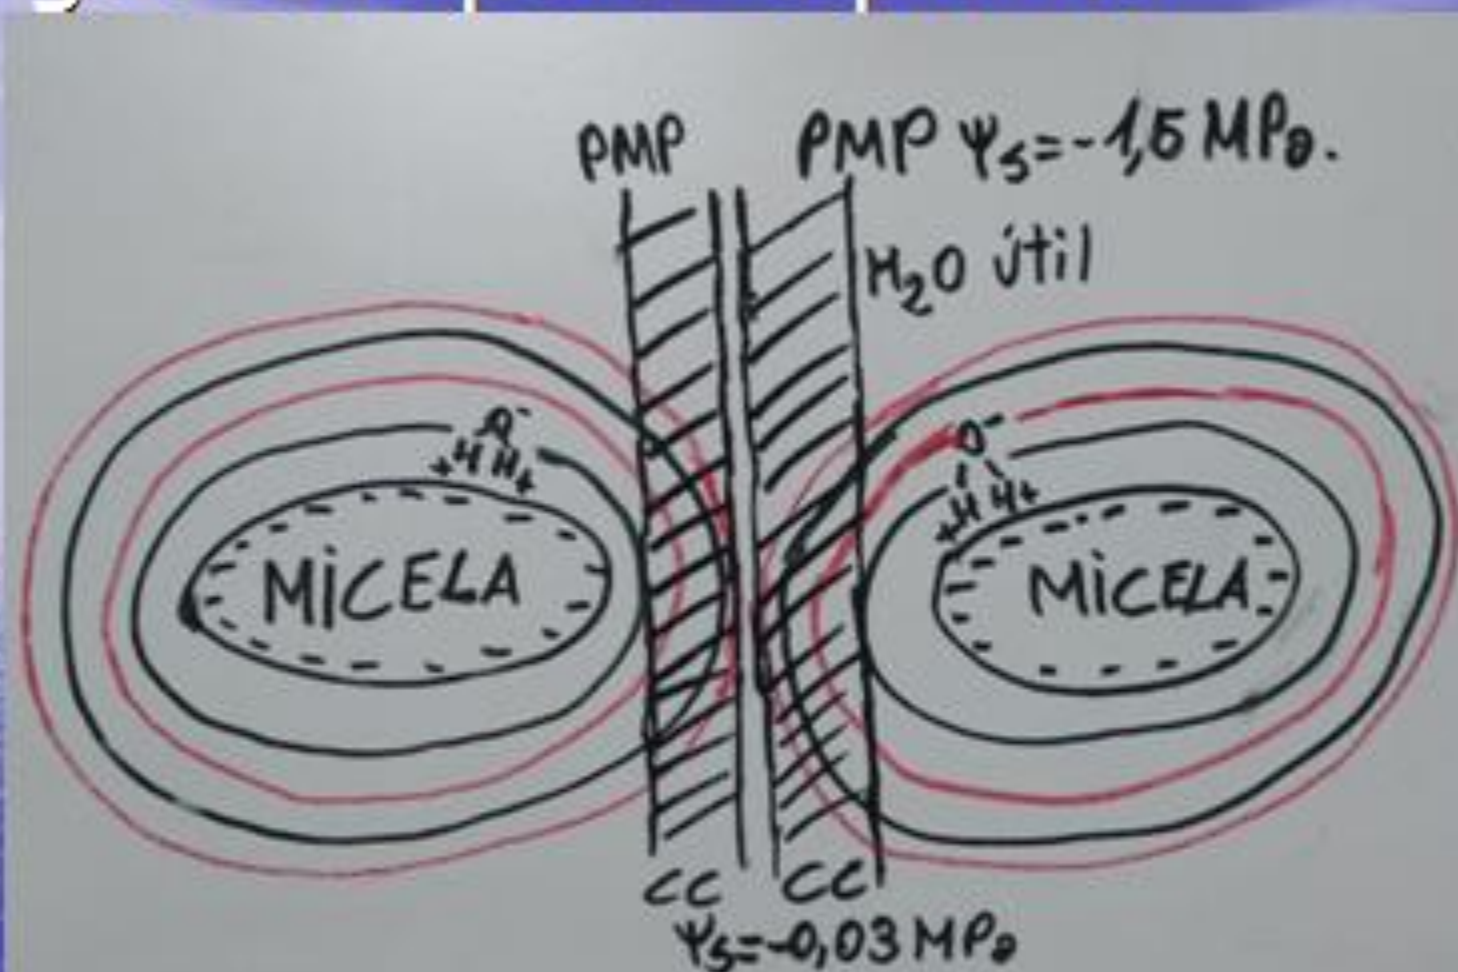 PMP
PMP Ψs=-1,5 MPa.
H₂O útil
O⁻
+H H+
MiCELA
O⁻
+H H+
MiCELA
CC CC
Ψs=-0,03 MPa